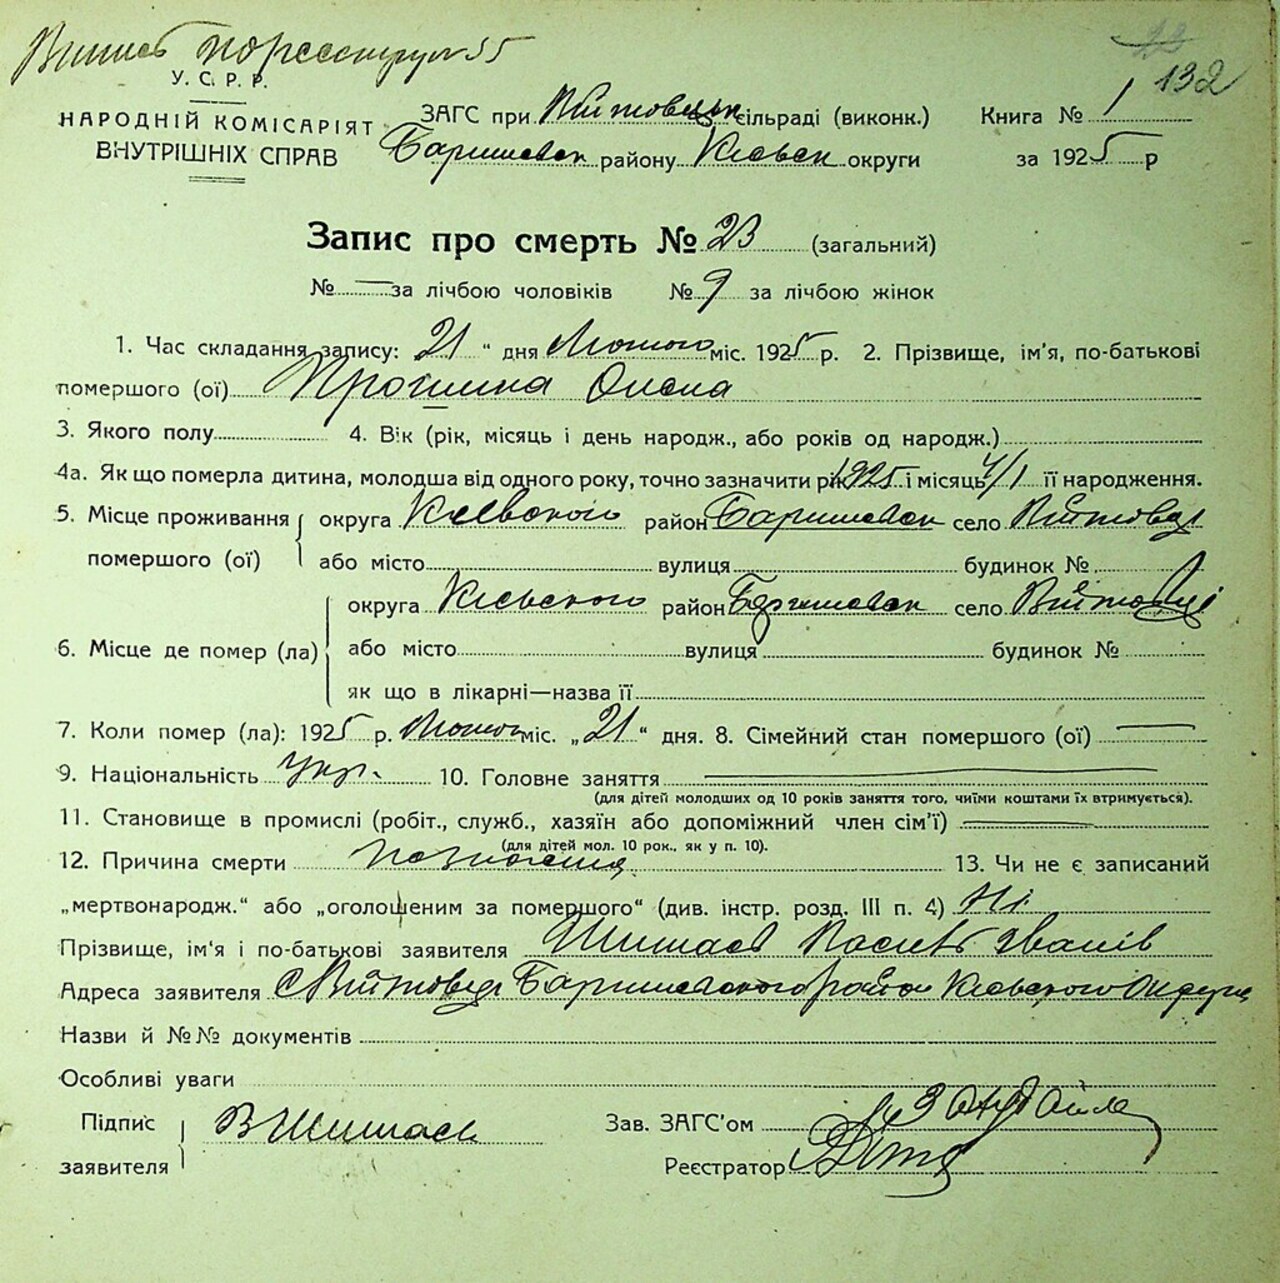 55
132
У. С. Р. Р.
НАРОДНІЙ КОМІСАРІЯТ
ВНУТРІШНІХ СПРАВ
ЗАГС при Війтовецьк сільраді (виконк.) Книга № 1
Баришевськ району Києвськ округи за 1925 р
Запис про смерть № 23 (загальний)
№ — за лічбою чоловіків № 9 за лічбою жінок
1. Час складання запису: 21 " дня Лютого міс. 1925 р. 2. Прізвище, ім'я, по-батькові
помершого (ої)
3. Якого полу 4. Вік (рік, місяць і день народж., або років од народж.)
4а. Як що померла дитина, молодша від одного року, точно зазначити рік 1925 і місяць 4/1 її народження.
5. Місце проживання округа Києвского район Баришевск село Війтовці
помершого (ої) або місто вулиця будинок №
округа Києвского район Баришевск село Війтовці
6. Місце де помер (ла) або місто вулиця будинок №
як що в лікарні—назва її
7. Коли помер (ла): 1925 р. Лютого міс. „21 “ дня. 8. Сімейний стан помершого (ої) —
9. Національність Укр. 10. Головне заняття —
(для дітей молодших од 10 років заняття того, чиїми коштами їх втримується).
11. Становище в промислі (робіт., служб., хазяїн або допоміжний член сім'ї) —
(для дітей мол. 10 рок., як у п. 10).
12. Причина смерти 13. Чи не є записаний
„мертвонародж.“ або „оголошеним за помершого“ (див. інстр. розд. III п. 4) Ні
Прізвище, ім'я і по-батькові заявителя
Адреса заявителя с Війтовці Баришевского район Києвского Округи
Назви й №№ документів
Особливі уваги
Підпис
заявителя
Зав. ЗАГС'ом
Реєстратор